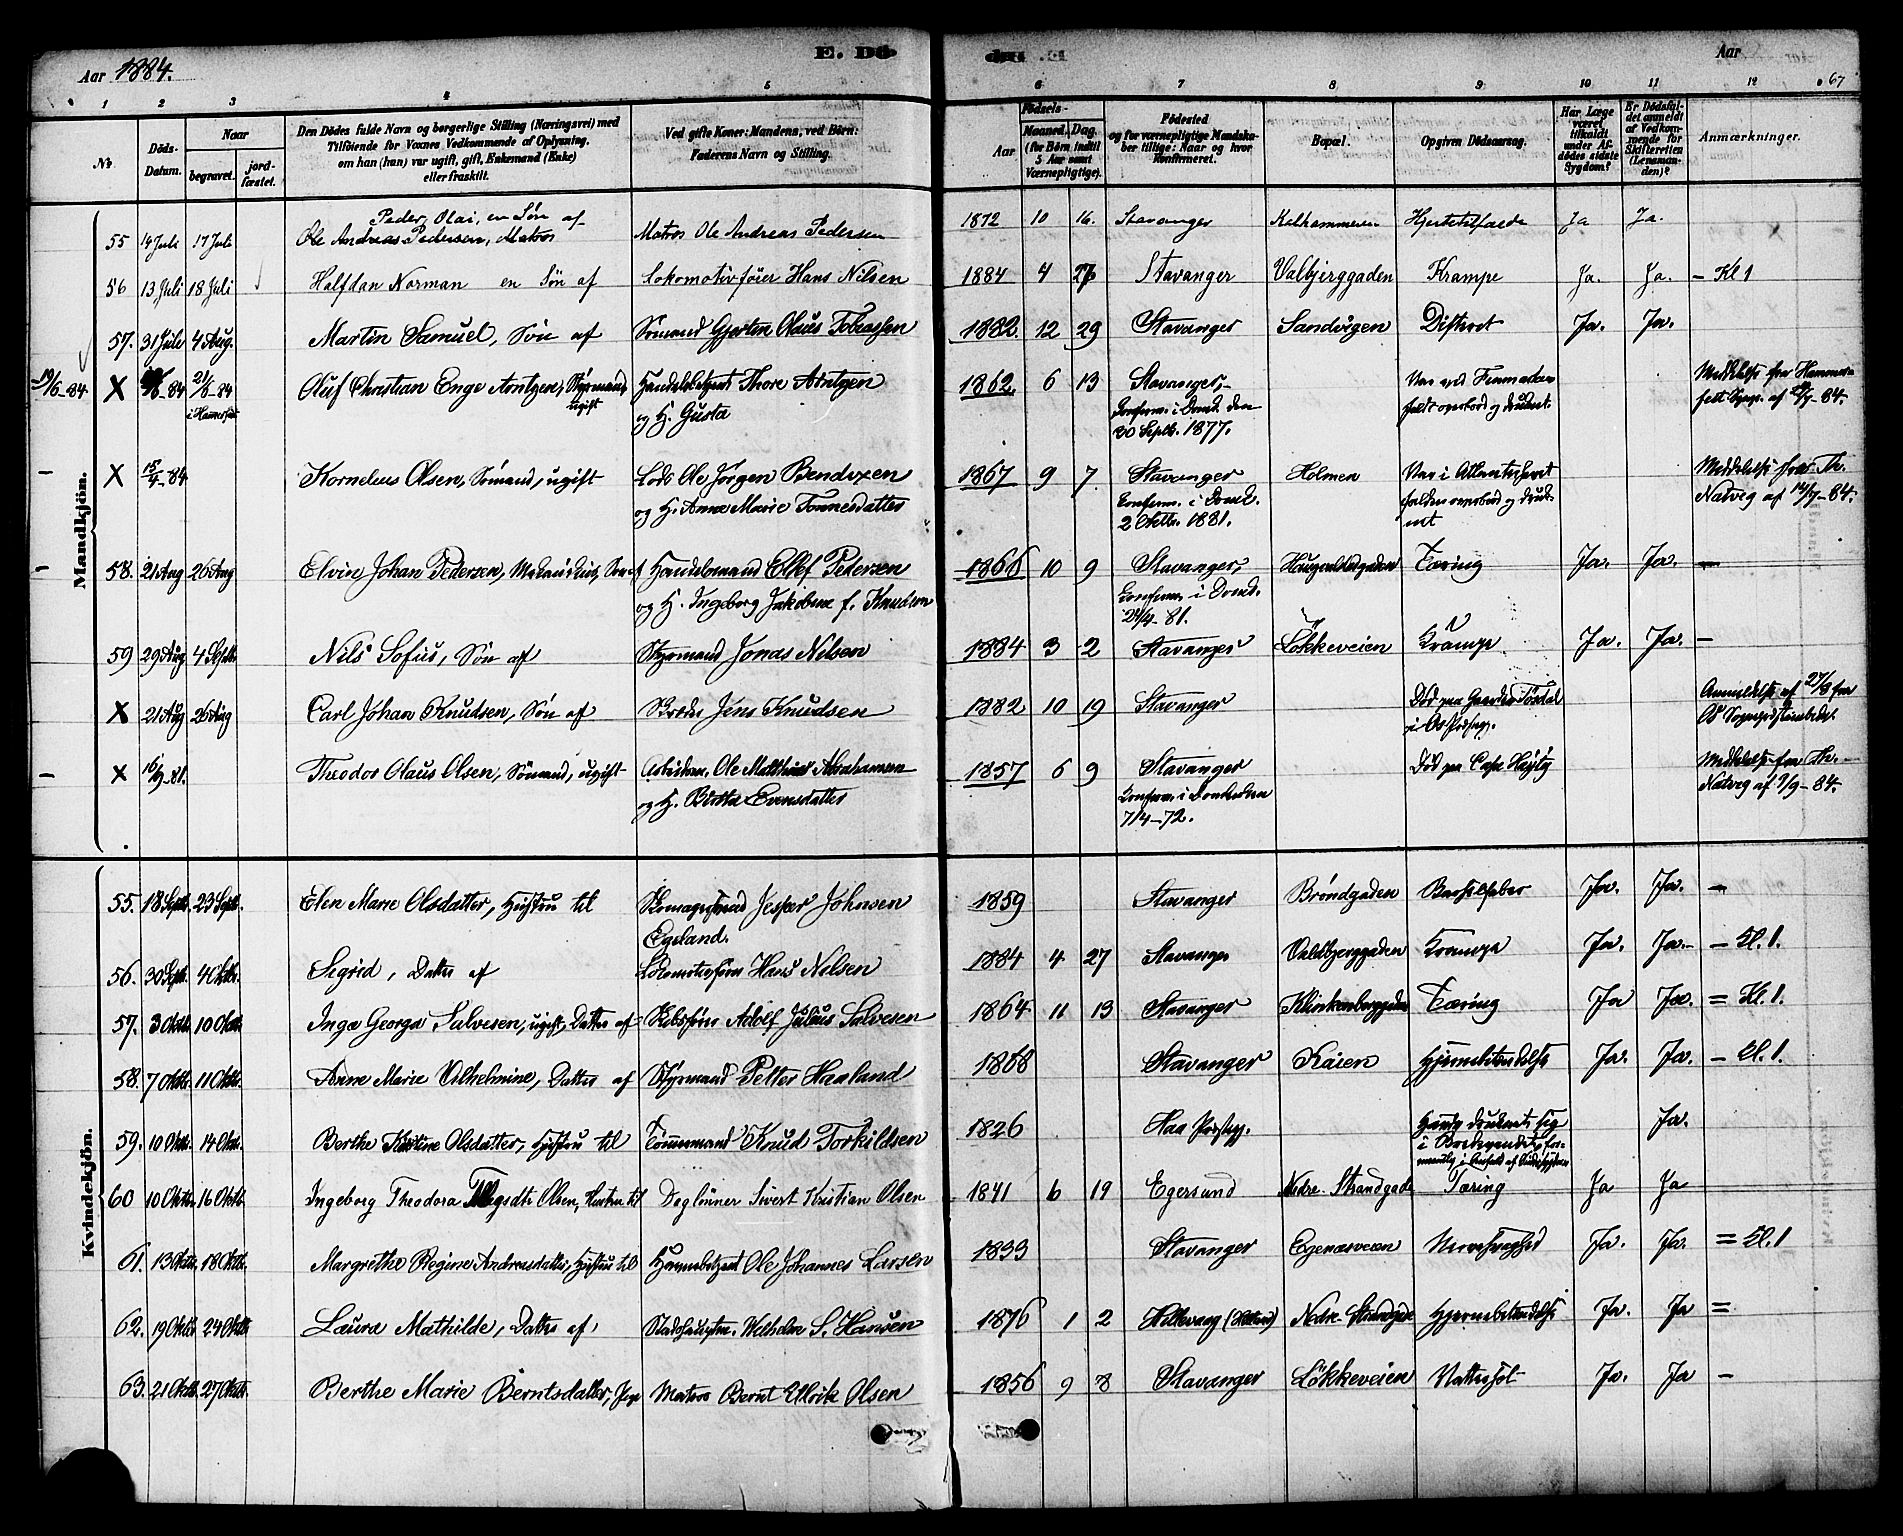 Aar 1884.
E. Dö
E. Dö
Aar
67
1 2 3 4 5 6 7 8 9 10 11 12
No.
Döds-Datum.
Naar
begravet.
jord-fæstet.
Den Dödes fulde Navn og borgerlige Stilling (Næringsvei) med
Tilföiende for Voxnes Vedkommende af Oplysning,
om han (hun) var ugift, gift, Enkemand (Enke)
eller fraskilt.
Ved gifte Koner: Mandens, ved Börn:
Faderens Navn og Stilling.
Födsels-
Aar
Maaned. Dag.
(for Börn indtil
5 Aar samt
Værnepligtige).
Födested
og for værnepligtige Mandska-
ber tillige: Naar og hvor
konfirmeret.
Bopæl.
Opgiven Dödsaarsag.
Har Læge
været
tilkaldt
under Af-
dödes sidste
Sygdom?
Er Dödsfal-
det anmeldt
af Vedkom-
mende for
Skifteretten
(Lensman-
den)?
Anmærkninger.
Mandkjön.
Peder Olai, en Søn af
55 14 Juli 17 Juli Ole Andreas Pedersen, Matros Matros Ole Andreas Pedersen 1872 10 16. Stavanger Kalhammeren Hjertetilfælde Ja Ja.
56 13 Juli 18 Juli Halfdan Norman en Søn af Lokomotivfører Hans Nilsen 1884 4 27 Stavanger Valbjerggaden Krampe Ja. Ja. – Kl 1
57. 31 Juli 4 Aug. Martin Samuel, Søn af Sømand Gjerten Olaus Tobiassen 1882 12 29 Stavanger Sandvigen Ja. Ja.
19/6-84. X 21/6-84 Oluf Christian Enge Arntzen, Styrmand, Thore Arntzen 1862 6 13 Stavanger,
i Hammerfest ugift og H. Gusta Konfirm. i Domk. den
30 Septb. 1877.
X 15/4-84 Kornelius Olsen, Sømand, ugift Lods Ole Jørgen Bendixen 1867 9 7 Stavanger Holmen Var i Atlanterhavet
og H. Anne Marie Tønnesdatter Konfirm. i Domk. falden overbord og druk-
2 Oktb. 1881. net
Natvig af 14/7-84.
58. 21 Aug 26 Aug Elvin Johan Pedersen, Handelsmand Ellef Pedersen 1866 10 9 Stavanger, Haugvaldstgaden Tæring Ja. Ja. –
og H. Ingeborg Jakobine f. Knudsen Konfirm. i Domk.
24/4-81.
59 29 Aug 4 Septb. Nils Sofus, Søn af Styrmand Jonas Nilsen 1884 3 2 Stavanger Løkkeveien Krampe Ja. Ja. –
X 21 Aug 26 Aug Carl Johan Knudsen, Søn af Jens Knudsen 1882 10 19 Stavanger Død paa Gaarden Anmeldelse af 27/8 fra
i Os
X Theodor Olaus Olsen, Sømand, ugift Ole Matthias Abrahamsen 1857 6 9 Stavanger Død paa Cape
og H. Bertha Evensdatter Konfirm. i Domkirken Natvig af 9/9-84.
7/4-72.
Kvindekjön.
55. 18 Septb. 23 Septb. Elen Marie Olsdatter, Hustru til Skomagersvend Jesper Johnsen 1859 Stavanger Brøndgaden Barselfeber Ja. Ja. –
Egeland.
56. 30 Septb. 4 Oktb. Sigrid, Datter af Lokomotivfører Hans Nilsen 1884 4 27 Stavanger Valdbjerggaden Krampe Ja. Ja. – Kl. 1.
57. 3 Oktb. 10 Oktb. Inga Georga Salvesen, ugift, Datter af Skibsfører Adolf Julius Salvesen 1864 11 13 Stavanger Klinkenberggaden Tæring Ja Ja. = Kl. 1.
58. 7 Oktb. 11 Oktb. Anne Marie Vilhelmine, Datter af Styrmand Petter Haaland 1868 Stavanger Kaien Hjernebetændelse Ja. Ja. – Kl. 1.
59. 10 Oktb. 14 Oktb. Berthe Kristine Olsdatter, Hustru til Tømmermand Knud Torkildsen 1826 Haa Præstegj. Ja.
i Bredevandet,
60 10 Oktbr. 16 Oktb. Ingeborg Theodora Olsen, Hustru til Dagløner Sivert Kristian Olsen 1841 6 19 Egersund Nedre Strandgade Tæring Ja Ja
61. 13 Oktb. 18 Oktb. Margrethe Regine Andreasdatter, Hustru til Ole Johannes Larsen 1833 Stavanger Egenæsveien Nervesvaghed Ja. Ja. = Kl. 1
62. 19 Oktb 24 Oktb. Laura Mathilde, Datter af Wilhelm S. Hansen 1876 1 2 Hillevaag Nedre Strandgade Hjernebetændelse Ja. Ja =
63. 21 Oktb. 27 Oktb. Berthe Marie Berntsdatter, Pige Matros Bernt Elvik Olsen 1856 9 8 Stavanger Løkkeveien Vattersot Ja. Ja –